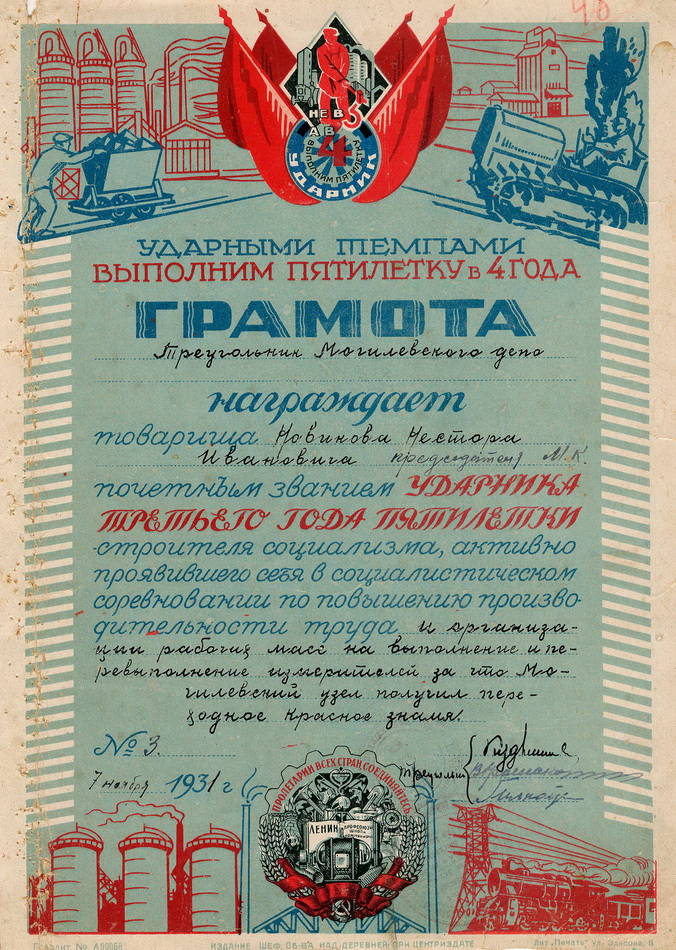 40
НЕ В 5
А В
4
ВЫПОЛНИМ ПЯТИЛЕТКУ
УДАРНИК
УДАРНЫМИ ТЕМПАМИ
ВЫПОЛНИМ ПЯТИЛЕТКУ В 4 ГОДА
ГРАМОТА
Треугольник Могилевского депо
награждает
товарища Новикова Нестора
Ивановича председателя М.К.
почетным званием УДАРНИКА
ТРЕТЬЕГО ГОДА ПЯТИЛЕТКИ
строителя социализма, активно
проявившего себя в социалистическом
соревновании по повышению произво-
дительности труда и организа-
ции рабочих масс на выполнение и пе-
ревыполнение измерителей за что Мо-
гилевский узел получил пере-
ходное красное знамя.
№ 3.
7 ноября 1931 г
Треугольник
ПРОЛЕТАРИИ ВСЕХ СТРАН СОЕДИНЯЙТЕСЬ
ЛЕНИН
ПРОФСОЮЗЫ ШКОЛА КОММУНИЗМА
Главлит No А90068
ИЗДАНИЕ ШЕФ. ОБ-ВА НАД ДЕРЕВНЕЙ ПРИ ЦЕНТРИЗДАТЕ
Лит. „Печать“ ул. Эдисона, 6